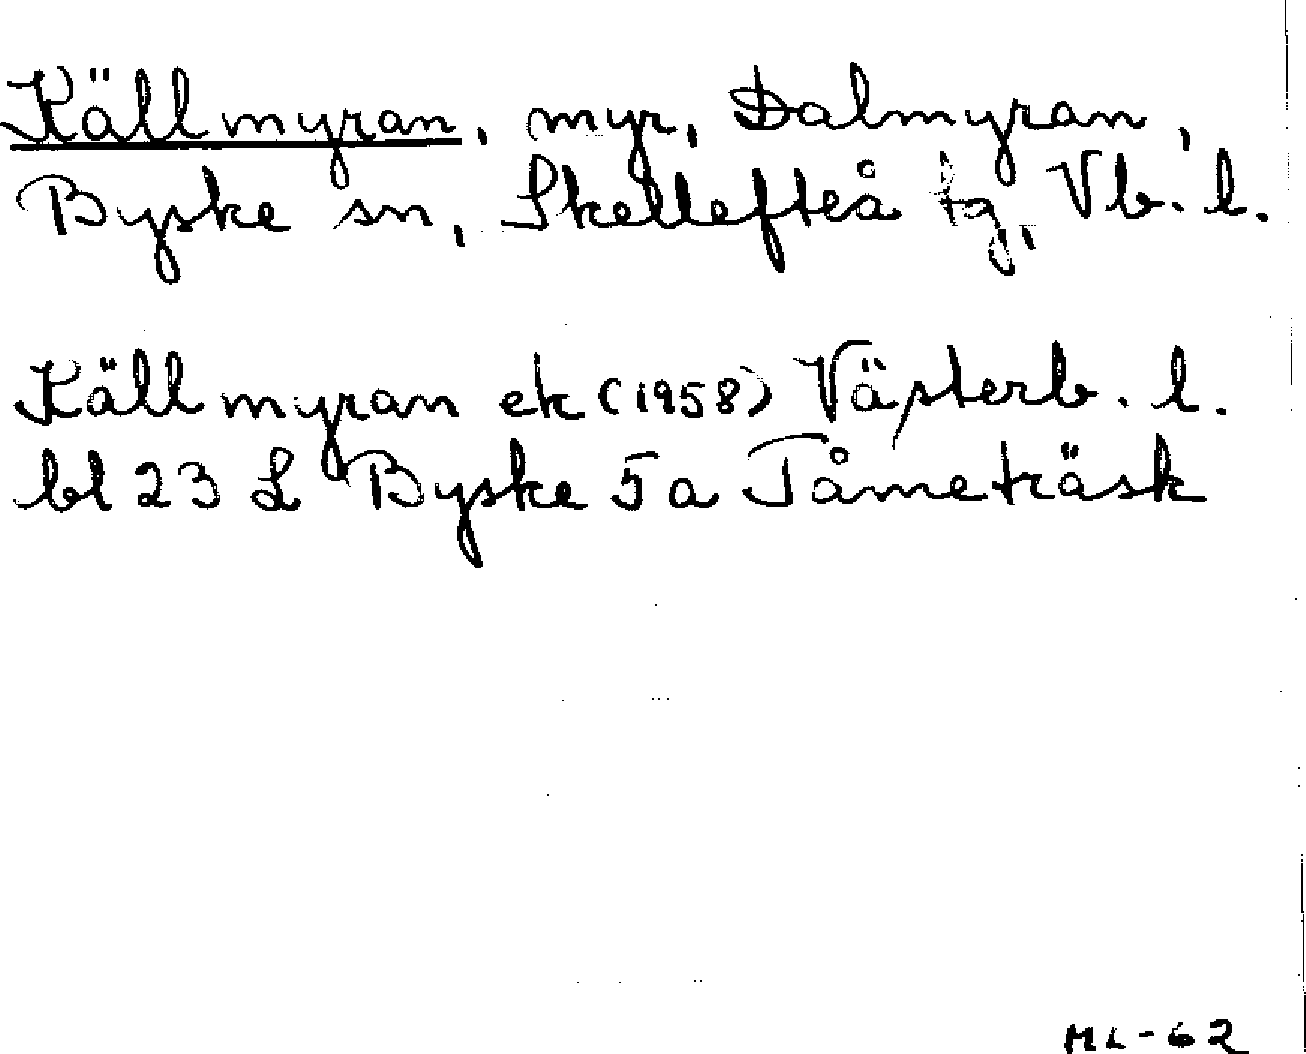 Källmyran, myr, Dalmyran,
Byske sn, Skellefteå tg, Vb. l.
Källmyran ek (1958) Västerb. l.
bl 23 L Byske 5a Tåmeträsk
ML-62